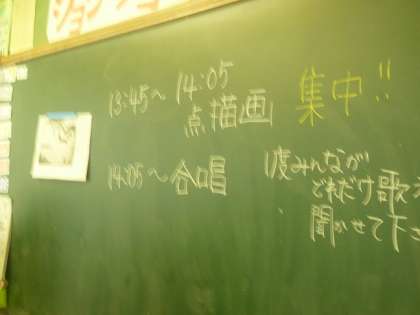 13:45～14:05
点描画 集中!!
14:05～合唱
1度みんなが
どれだけ歌え
聞かせて下さ